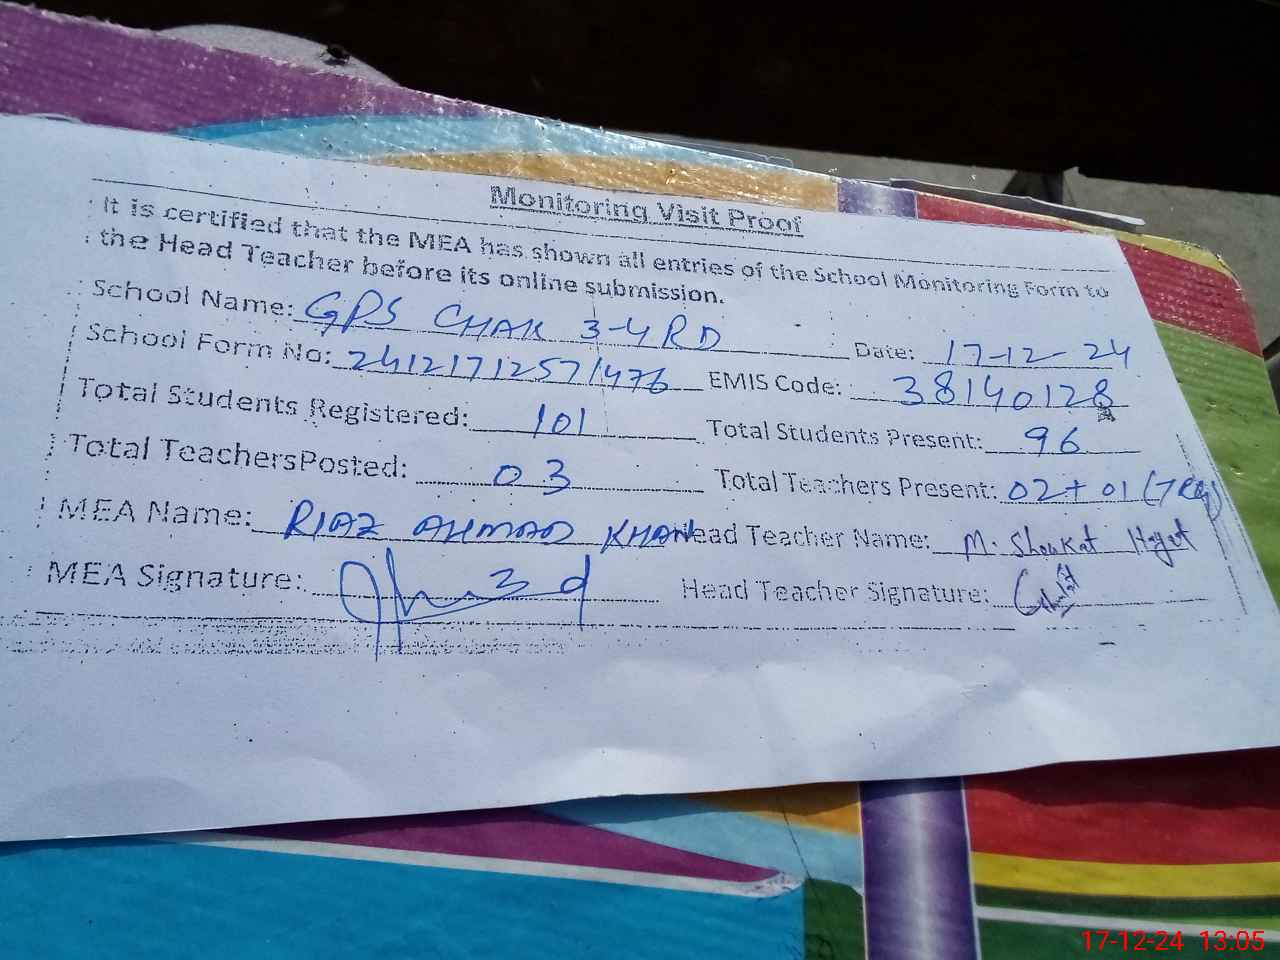 Monitoring Visit Proof
It is certified that the MEA has shown all entries of the School Monitoring Form to
the Head Teacher before its online submission.
School Name: GPS CHAK 3-4RD Date: 17-12-24
School Form No: 2412171257/476 EMIS Code: 38140128
Total Students Registered: 101 Total Students Present: 96
Total TeachersPosted: 03 Total Teachers Present: 02+01 (TRG)
MEA Name: RIAZ AHMAD KHAN Head Teacher Name: M. Shoukat Hayat
MEA Signature: Head Teacher Signature:
17-12-24 13:05